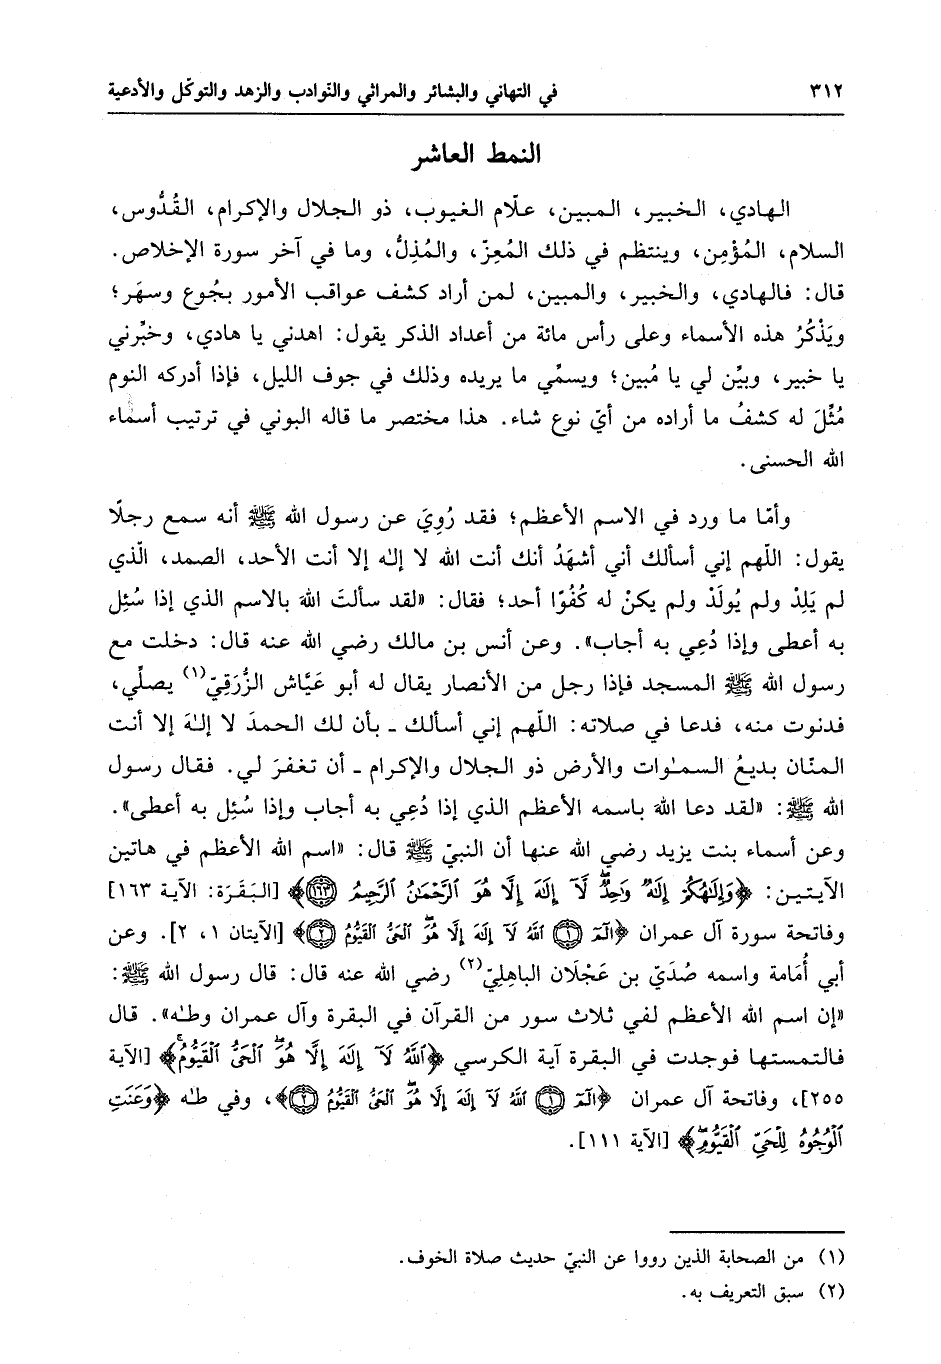 ٣١٢ في التهاني والبشائر والمراثي والنّوادب والزهد والتوكّل والأدعية
النمط العاشر
الهادي، الخبير، المبين، علّام الغيوب، ذو الجلال والإكرام، القُدُّوس،
السلام، المُؤْمِن، وينتظم في ذلك المُعِزّ، والمُذِلُّ، وما في آخر سورة الإخلاص.
قال: فالهادي، والخبير، والمبين، لمن أراد كشف عواقب الأمور بجُوع وسهَر؛
ويَذْكُرُ هذه الأسماء وعلى رأس مائة من أعداد الذكر يقول: اهدني يا هادي، وخبِّرني
يا خبير، وبيِّن لي يا مُبين؛ ويسمِّي ما يريده وذلك في جوف الليل، فإذا أدركه النوم
مُثِّلَ له كشفُ ما أراده من أيّ نوع شاء. هذا مختصر ما قاله البوني في ترتيب أسماء
الله الحسنى.
وأمّا ما ورد في الاسم الأعظم؛ فقد رُوِيَ عن رسول الله ﷺ أنه سمع رجلًا
يقول: اللّهم إني أسألك أني أشهَدُ أنك أنت الله لا إلٰه إلا أنت الأحد، الصمد، الّذي
لم يَلِدْ ولم يُولَدْ ولم يكنْ له كُفُوًا أحد؛ فقال: «لقد سألتَ اللهَ بالاسم الذي إذا سُئِل
به أعطى وإذا دُعِي به أجاب». وعن أنس بن مالك رضي الله عنه قال: دخلت مع
رسول الله ﷺ المسجد فإذا رجل من الأنصار يقال له أبو عَيَّاش الزُّرَقِيّ(١) يصلِّي،
فدنوت منه، فدعا في صلاته: اللّهم إني أسألك ـ بأن لك الحمدَ لا إلٰهَ إلا أنت
المنّان بديعُ السمٰوات والأرض ذو الجلال والإكرام ـ أن تغفرَ لي. فقال رسول
الله ﷺ: «لقد دعا اللهَ باسمه الأعظم الذي إذا دُعِي به أجاب وإذا سُئِل به أعطى».
وعن أسماء بنت يزيد رضي الله عنها أن النبيّ ﷺ قال: «اسم الله الأعظم في هاتين
الآيتين: ﴿وَإِلَٰهُكُمْ إِلَٰهٌ وَٰحِدٌ لَّآ إِلَٰهَ إِلَّا هُوَ ٱلرَّحْمَٰنُ ٱلرَّحِيمُ ١٦٣﴾ [البَقَرَة: الآية ١٦٣]
وفاتحة سورة آل عمران ﴿الٓمٓ ١ ٱللَّهُ لَآ إِلَٰهَ إِلَّا هُوَ ٱلْحَىُّ ٱلْقَيُّومُ ٢﴾ [الآيتان ١، ٢]. وعن
أبي أُمَامة واسمه صُدَيّ بن عَجْلَان الباهِلِيّ(٢) رضي الله عنه قال: قال رسول الله ﷺ:
«إن اسم الله الأعظم لفي ثلاث سور من القرآن في البقرة وآل عمران وطٰه». قال
فالتمستها فوجدت في البقرة آية الكرسي ﴿ٱللَّهُ لَآ إِلَٰهَ إِلَّا هُوَ ٱلْحَىُّ ٱلْقَيُّومُ﴾ [الآية
٢٥٥]، وفاتحة آل عمران ﴿الٓمٓ ١ ٱللَّهُ لَآ إِلَٰهَ إِلَّا هُوَ ٱلْحَىُّ ٱلْقَيُّومُ ٢﴾، وفي طٰه ﴿وَعَنَتِ
ٱلْوُجُوهُ لِلْحَىِّ ٱلْقَيُّومِ﴾ [الآية ١١١].
(١) من الصحابة الذين رووا عن النبيّ حديث صلاة الخوف.
(٢) سبق التعريف به.